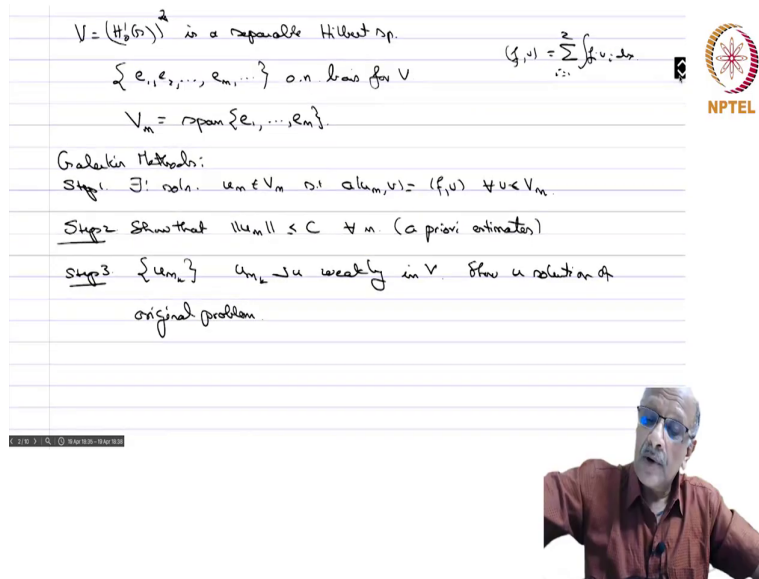 V = (H₀¹(Ω))² is a separable Hilbert sp.
(f, v) = Σ²ᵢ₌₁ ∫ fᵢ vᵢ dx.
{e₁, e₂, ..., em, ...} o.n. basis for V
NPTEL
Vm = span {e₁, ..., em}.
Galerkin Methods:
Step 1. ∃! soln. um ∈ Vm s.t. a(um, v) = (f, v) ∀ v ∈ Vm.
Step 2 Show that ||um|| ≤ C ∀ m. (a priori estimates)
Step 3. {umk} umk ⇀ u weakly in V. Show u solution of
original problem.
2/10 19 Apr 18:35 - 19 Apr 18:38